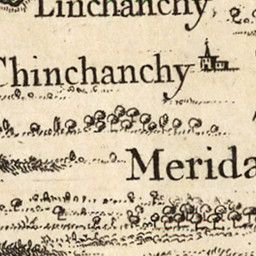 Linchanchy
Chinchanchy
Merida